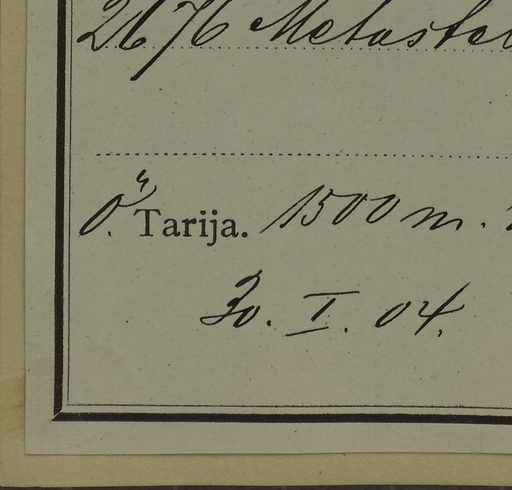 2676 Metastel
Ö. Tarija. 1500 m.
30. I. 04.